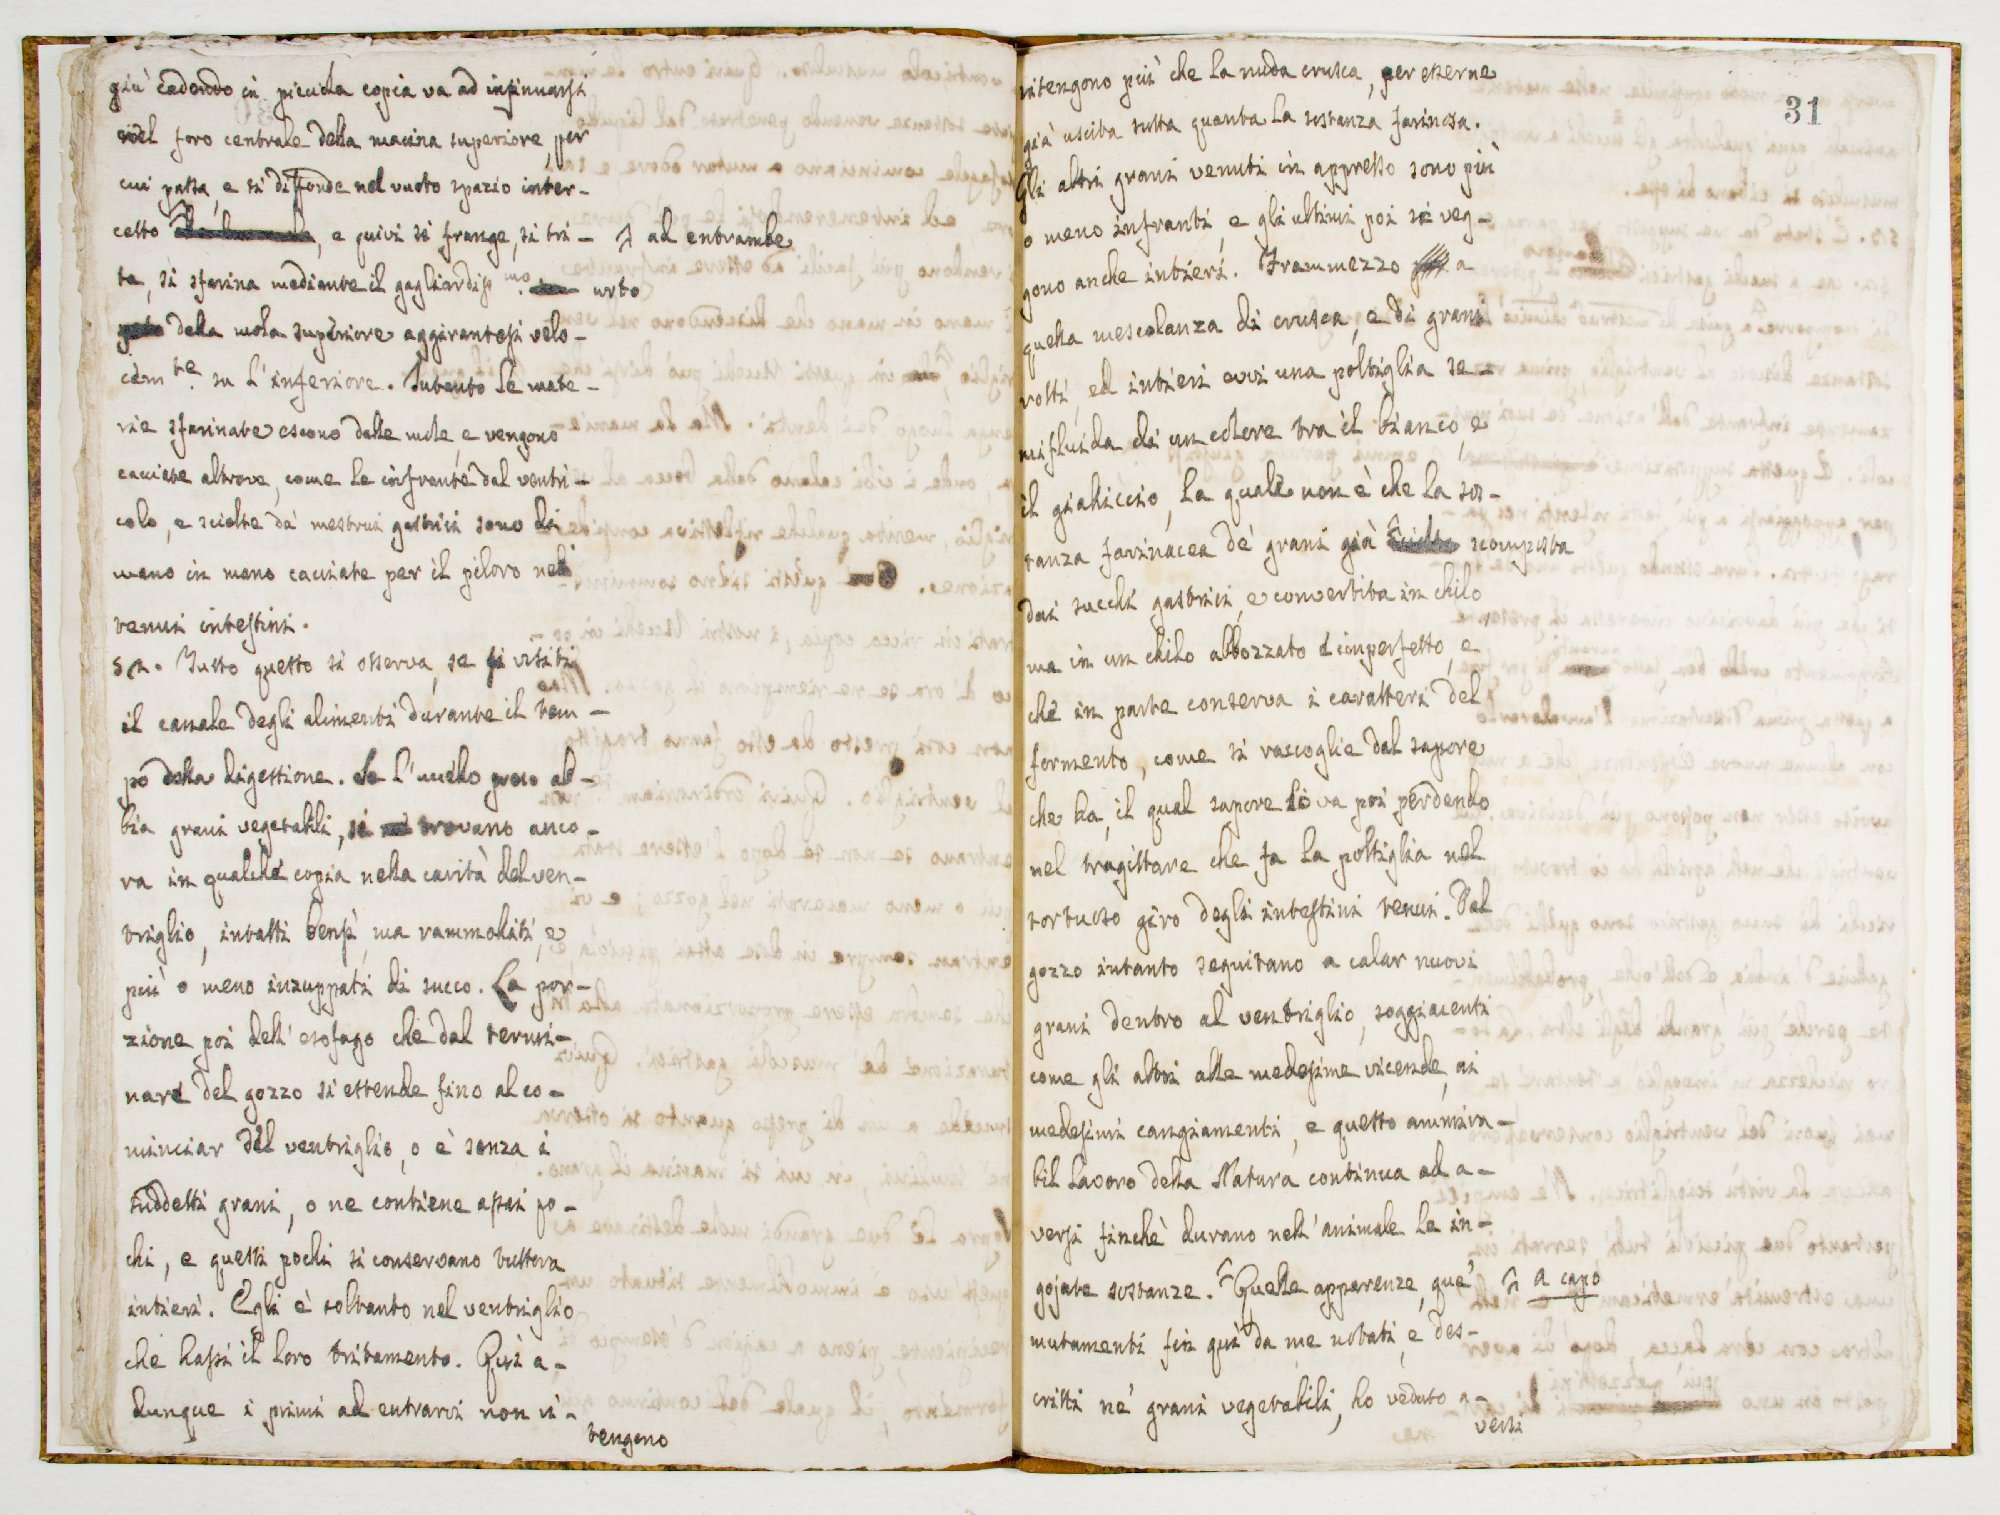 giù cadendo in piccola copia va ad insinuarsi
nel foro centrale della macina superiore, per
cui passa, e si diffonde nel vuoto spazio inter-
cetto, e quivi si frange, si tri-
ad entrambe
ta, si sfarina mediante il gagliardissmo. urto
della mola superiore aggirantesi velo-
cemte. su l'inferiore. Intanto le mate-
rie sfarinate escono dalle mole, e vengono
cacciate altrove, come le infrante dal ventri-
colo, e sciolte da' mestrui gastrici sono di
mano in mano cacciate per il piloro nei
tenui intestini.
Tutto questo si osserva, se si visiti
il canale degli alimenti durante il tem-
po della digestione. Se l'uccello preso ab-
bia grani vegetabili, si trovano anco-
ra in qualche copia nella cavità del ven-
triglio, intatti bensì, ma rammolliti, e
più o meno inzuppati di succo. La por-
zione poi dell'esofago che dal termi-
nare del gozzo si estende fino al co-
minciar del ventriglio, o è senza i
suddetti grani, o ne contiene assai po-
chi, e questi pochi si conservano tuttora
intieri. Egli è soltanto nel ventriglio
che hassi il loro tritamento. Quì a-
dunque i primi ad entrarvi non ri-
tengono
ritengono più che la nuda crusca, per esserne
già uscita tutta quanta la sostanza farinosa.
Gli altri grani venuti in appresso sono più
o meno infranti, e gli ultimi poi si veg-
gono anche intieri. Frammezzo a
quella mescolanza di crusca, e di grani
rotti, ed intieri evvi una poltiglia se-
mifluida di un colore tra il bianco, e
il gialliccio, la quale non è che la sos-
tanza farinacea de' grani già scomposta
dai succhi gastrici, e convertita in chilo
ma in un chilo abbozzato ed imperfetto, e
che in parte conserva i caratteri del
formento, come si raccoglie dal sapore
che ha, il qual sapore si va poi perdendo
nel tragittare che fa la poltiglia nel
tortuoso giro degli intestini tenui. Dal
gozzo intanto seguitano a calar nuovi
grani dentro al ventriglio, soggiacenti
come gli altri alle medesime vicende, ai
medesimi cangiamenti, e questo ammira-
bil lavoro della Natura continua ad a-
versi finchè durano nell'animale le in-
gojate sostanze. Quelle apparenze, que'
a capo
mutamenti fin quì da me notati, e des-
critti ne' grani vegetabili, ho veduto a-
versi
31